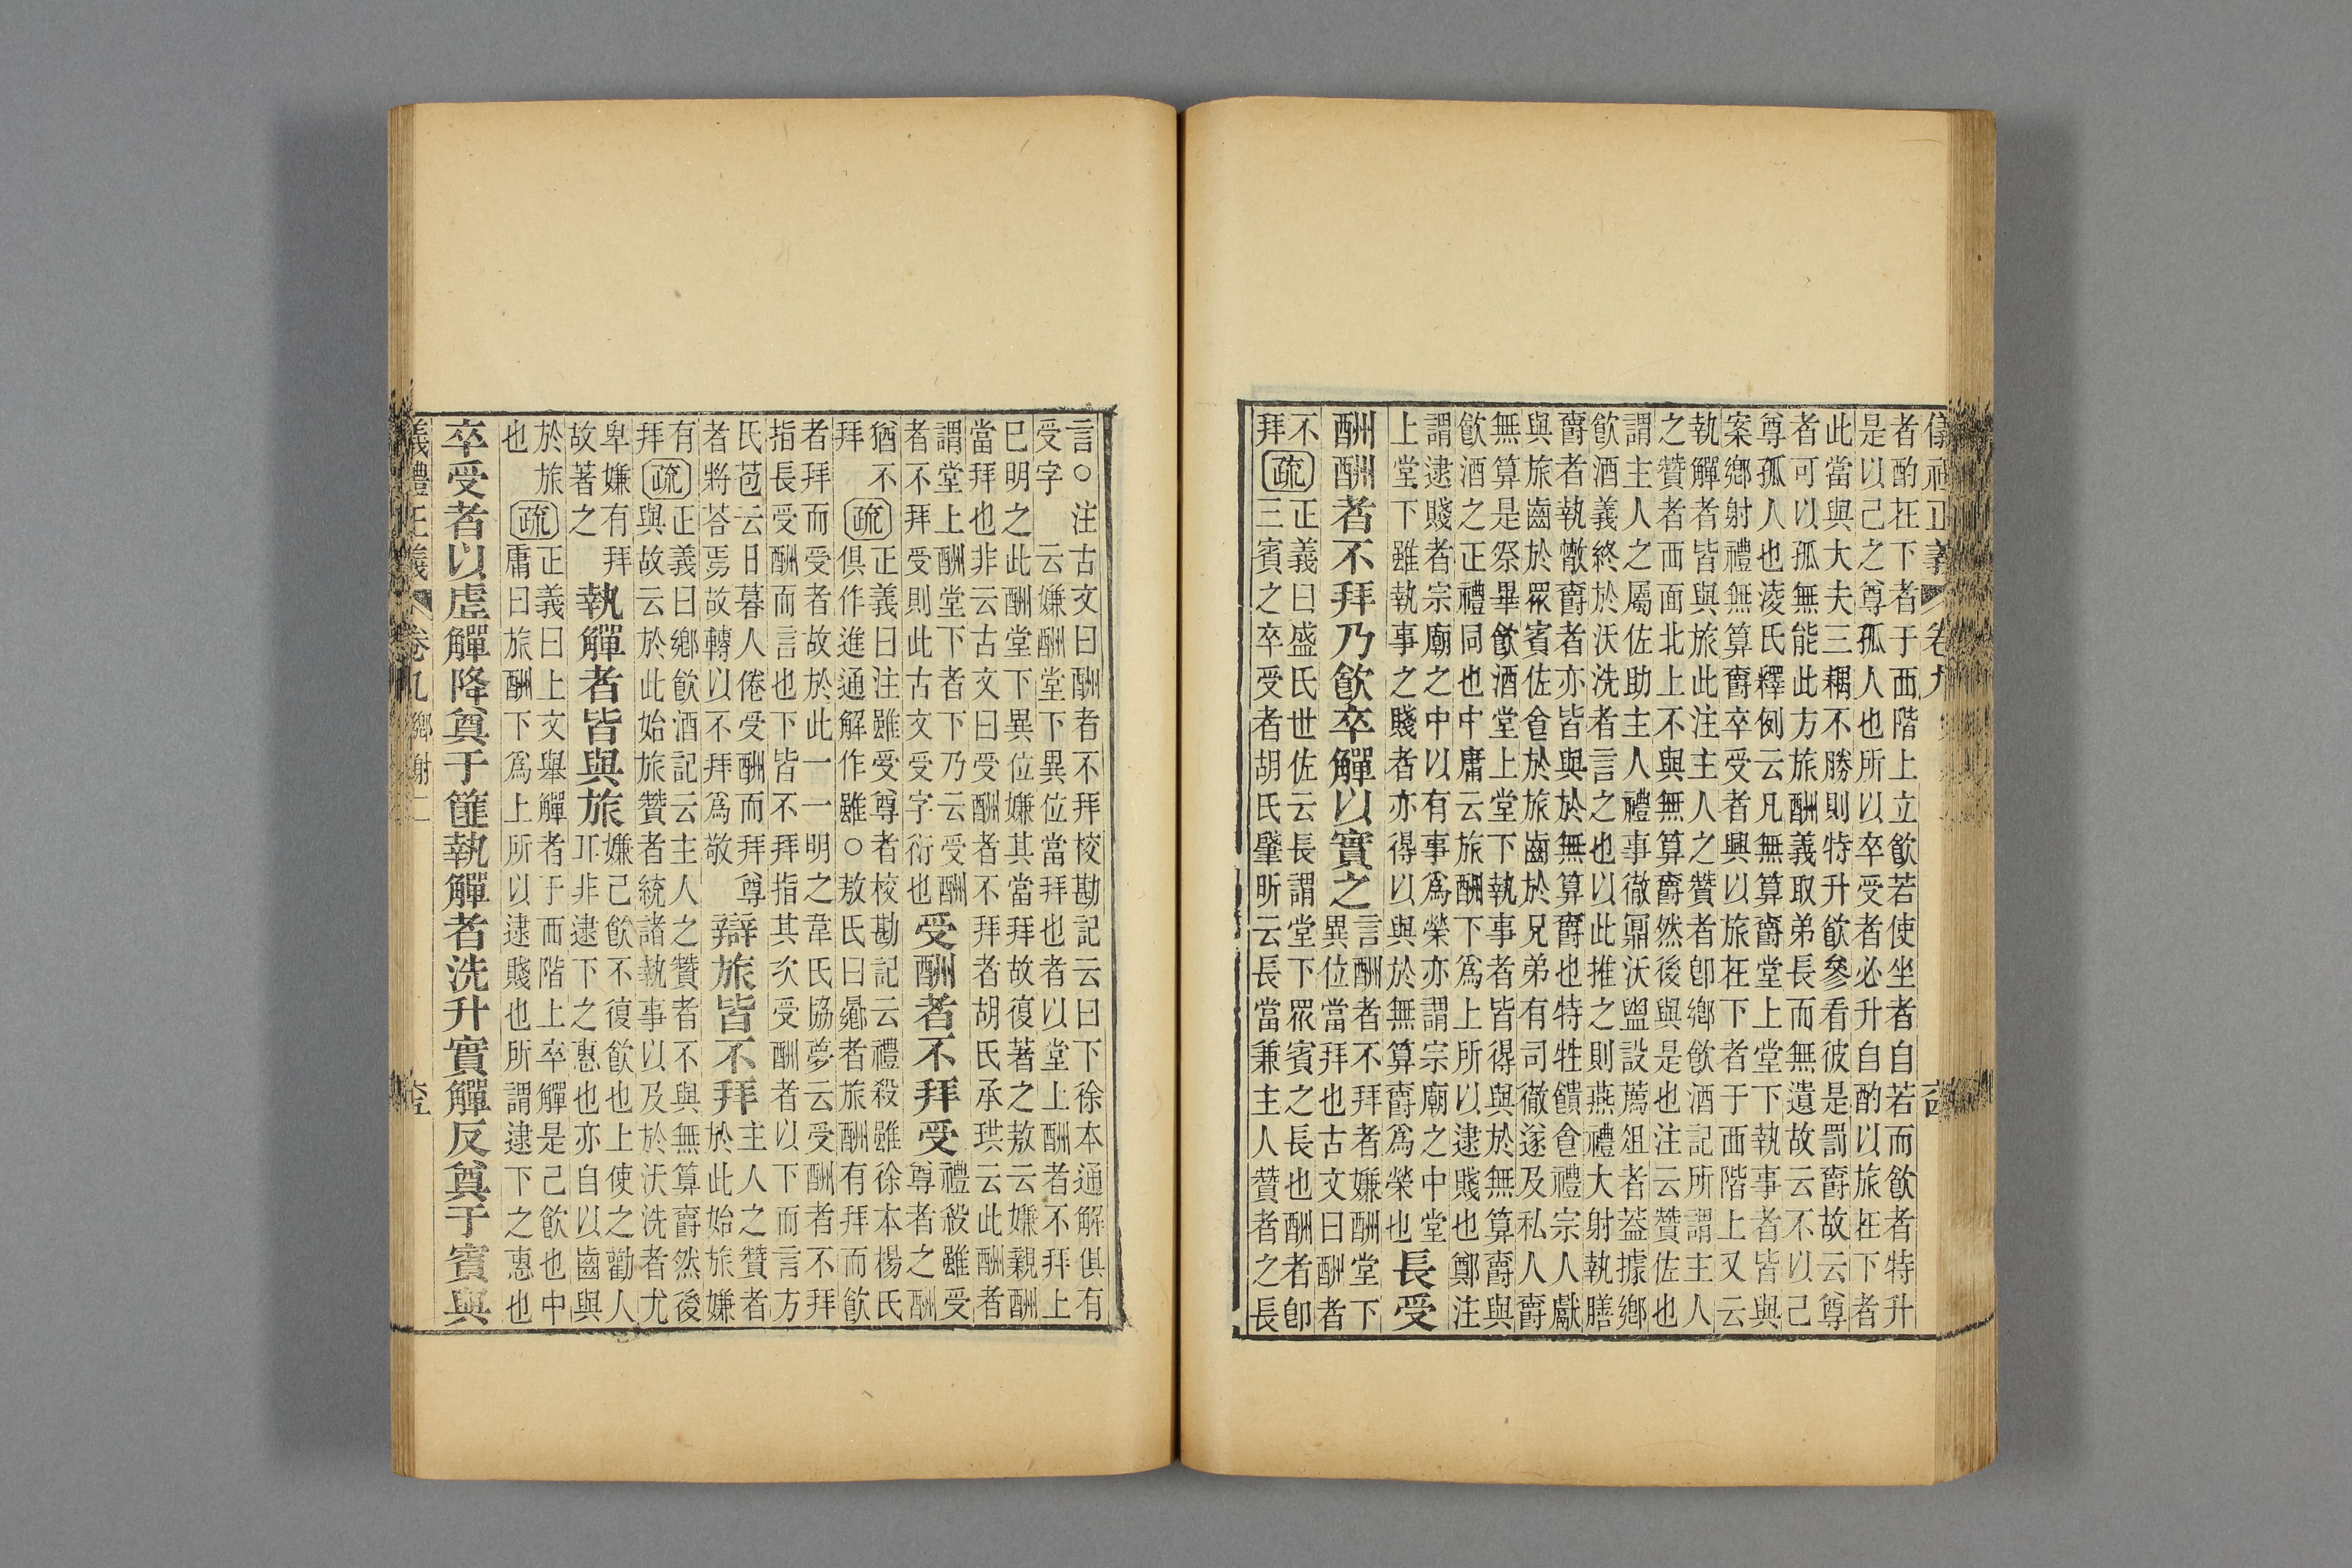 者酌在下者于西階上立飲若使坐者自若而飲者特升
是以己之尊孤人也所以卒受者必升自酌以旅在下者
此當與大夫三耦不勝則特升飲參看彼是罰爵故云尊
者可以孤無能此方旅酬義取弟長而無遺故云不以己
尊孤人也淩氏釋例云凡無算爵堂上堂下執事者皆與
案鄉射禮無算爵卒受者興以旅在下者于西階上又云
執觶者皆與旅此注主人之贊者卽鄉飲酒記所謂主人
之贊者西面北上不與無算爵然後與是也注云贊佐也
謂主人之屬佐助主人禮事徹鼏沃盥設薦俎者葢據鄉
飲酒義終於沃洗者言之也以此推之則燕禮大射執膳
爵者執散爵者亦皆與於無算爵也特牲饋食禮宗人獻
與旅齒於眾賓佐食於旅齒於兄弟有司徹遂及私人爵
無算是祭畢飲酒堂上堂下執事者皆得與於無算爵與
飲酒之正禮同也中庸云旅酬下爲上所以逮賤也鄭注
謂逮賤者宗廟之中以有事爲榮亦謂宗廟之中堂
上堂下雖執事之賤者亦得以與於無算爵爲榮也
長受
酬酬者不拜乃飲卒觶以實之
言酬者不拜者嫌酬堂下
異位當拜也古文曰酬者
不
拜
疏
正義曰盛氏世佐云長謂堂下眾賓之長也酬者卽
三賓之卒受者胡氏肇昕云長當兼主人贊者之長
言○注古文曰酬者不拜校勘記云曰下徐本通解俱有
受字 云嫌酬堂下異位當拜也者以堂上酬者不拜上
已明之此酬堂下異位嫌其當拜故復著之敖云嫌親酬
當拜也非云古文曰受酬者不拜者胡氏承珙云此酬者
謂堂上酬堂下者下乃云受酬
者不拜受則此古文受字衍也
受酬者不拜受
禮殺雖受
尊者之酬
猶不
拜
疏
正義曰注雖受尊者校勘記云禮殺雖徐本楊氏
俱作進通解作雖○敖氏曰曏者旅酬有拜而飲
者拜而受者故於此一一明之韋氏協夢云受酬者不拜
指長受酬而言也下皆不拜指其次受酬者以下而言方
氏苞云日暮人倦受酬而拜尊
者將荅焉故轉以不拜爲敬
辯旅皆不拜
主人之贊者
於此始旅嫌
有
拜
疏
正義曰鄉飲酒記云主人之贊者不與無算爵然後
與故云於此始旅贊者統諸執事以及於沃洗者尤
卑嫌有拜
故著之
執觶者皆與旅
嫌己飲不復飲也上使之勸人
耳非逮下之惠也亦自以齒與
於旅
也
疏
正義曰上文舉觶者于西階上卒觶是己飲也中
庸曰旅酬下爲上所以逮賤也所謂逮下之惠也
卒受者以虛觶降奠于篚執觶者洗升實觶反奠于賓與